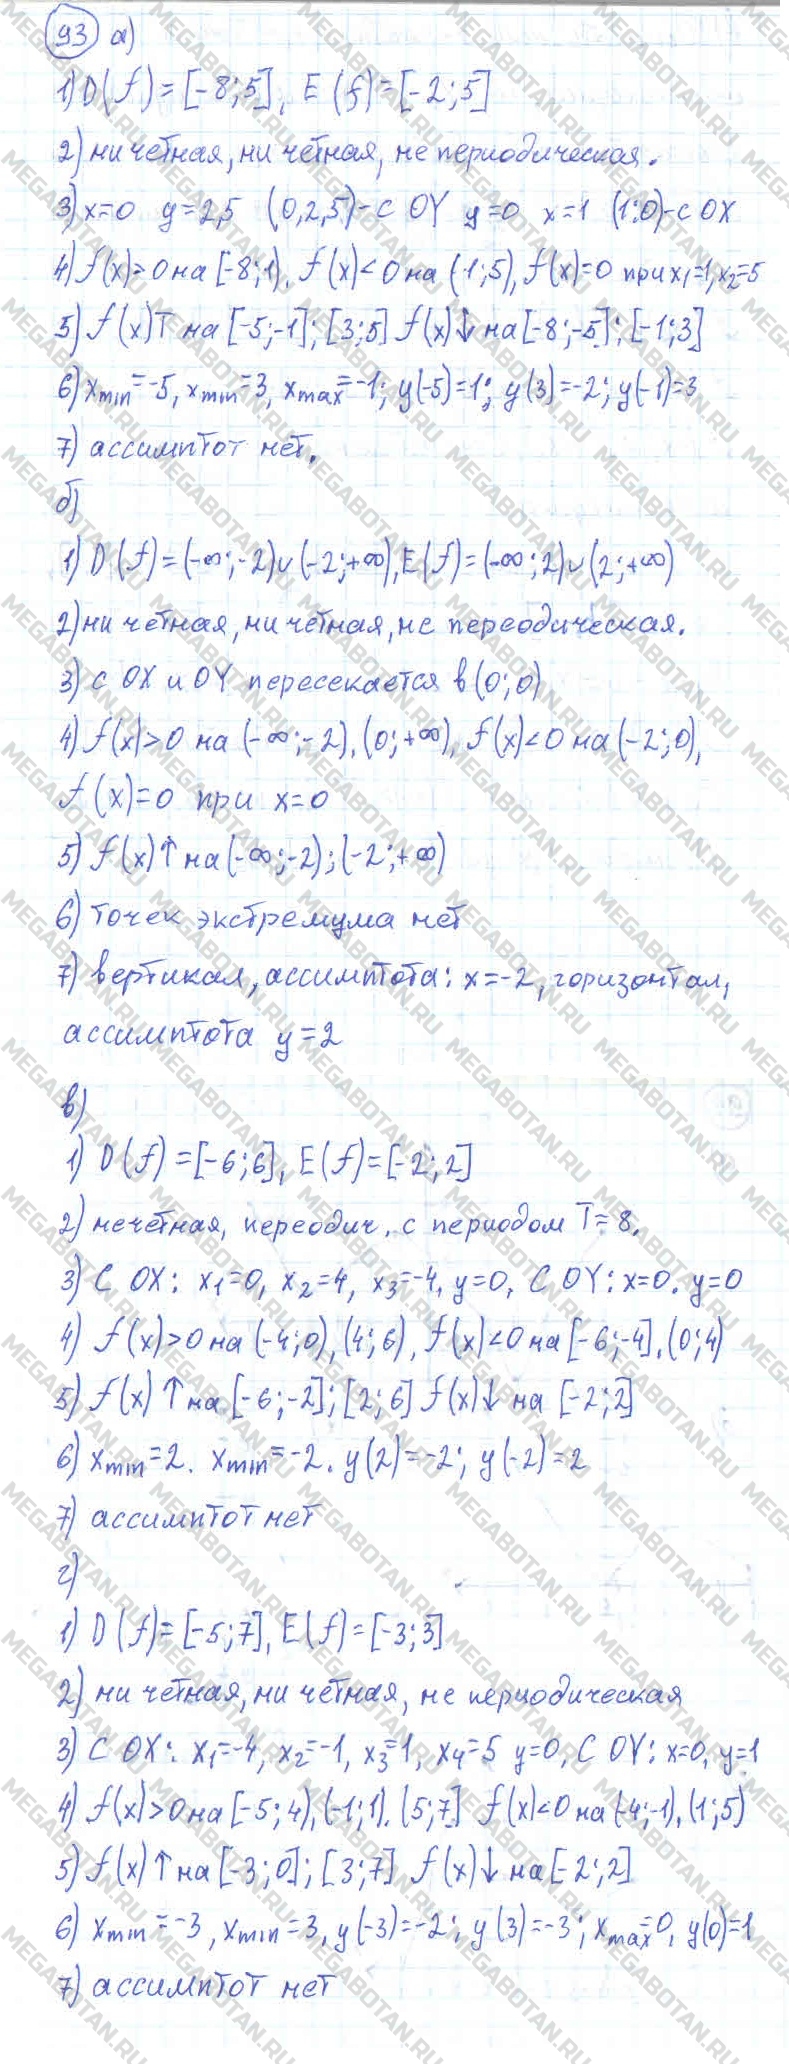 93 а)
1) D(f)=[-8;5], E(f)=[-2;5]
2) ни чётная, ни чётная, не периодическая.
3) x=0 y=2,5 (0,2,5)-с OY y=0 x=1 (1;0)-с OX
4) f(x)>0 на [-8;1), f(x)<0 на (1;5), f(x)=0 при x₁=1, x₂=5
5) f(x)↑ на [-5;-1]; [3;5] f(x)↓ на [-8;-5]; [-1;3]
6) xmin=-5, xmin=3, xmax=-1; y(-5)=1; y(3)=-2; y(-1)=3
7) ассимптот нет.
б)
1) D(f)=(-∞;-2)∪(-2;+∞), E(f)=(-∞;2)∪(2;+∞)
2) ни чётная, ни чётная, не переодическая.
3) с OX и OY пересекается в (0;0)
4) f(x)>0 на (-∞;-2), (0;+∞), f(x)<0 на (-2;0),
f(x)=0 при x=0
5) f(x)↑ на (-∞;-2); (-2;+∞)
6) точек экстремума нет
7) вертикал, ассимптота: x=-2, горизонтал,
ассимптота y=2
в)
1) D(f)=[-6;6], E(f)=[-2;2]
2) нечётная, переодич. с периодом T=8.
3) С OX: x₁=0, x₂=4, x₃=-4, y=0, С OY: x=0. y=0
4) f(x)>0 на (-4;0), (4;6), f(x)<0 на [-6;-4], (0;4)
5) f(x)↑ на [-6;-2]; [2;6] f(x)↓ на [-2;2]
6) xmin=2. xmin=-2. y(2)=-2; y(-2)=2
7) ассимптот нет
г)
1) D(f)=[-5;7], E(f)=[-3;3]
2) ни чётная, ни чётная, не периодическая
3) С OX: x₁=-4, x₂=-1, x₃=1, x₄=5 y=0, С OY: x=0, y=1
4) f(x)>0 на [-5;4), (-1;1), (5;7] f(x)<0 на (-4;-1), (1;5)
5) f(x)↑ на [-3;0]; [3;7] f(x)↓ на [-2;2]
6) xmin=-3, xmin=3, y(-3)=-2; y(3)=-3; xmax=0, y(0)=1
7) ассимптот нет
MEGABOTAN.RU